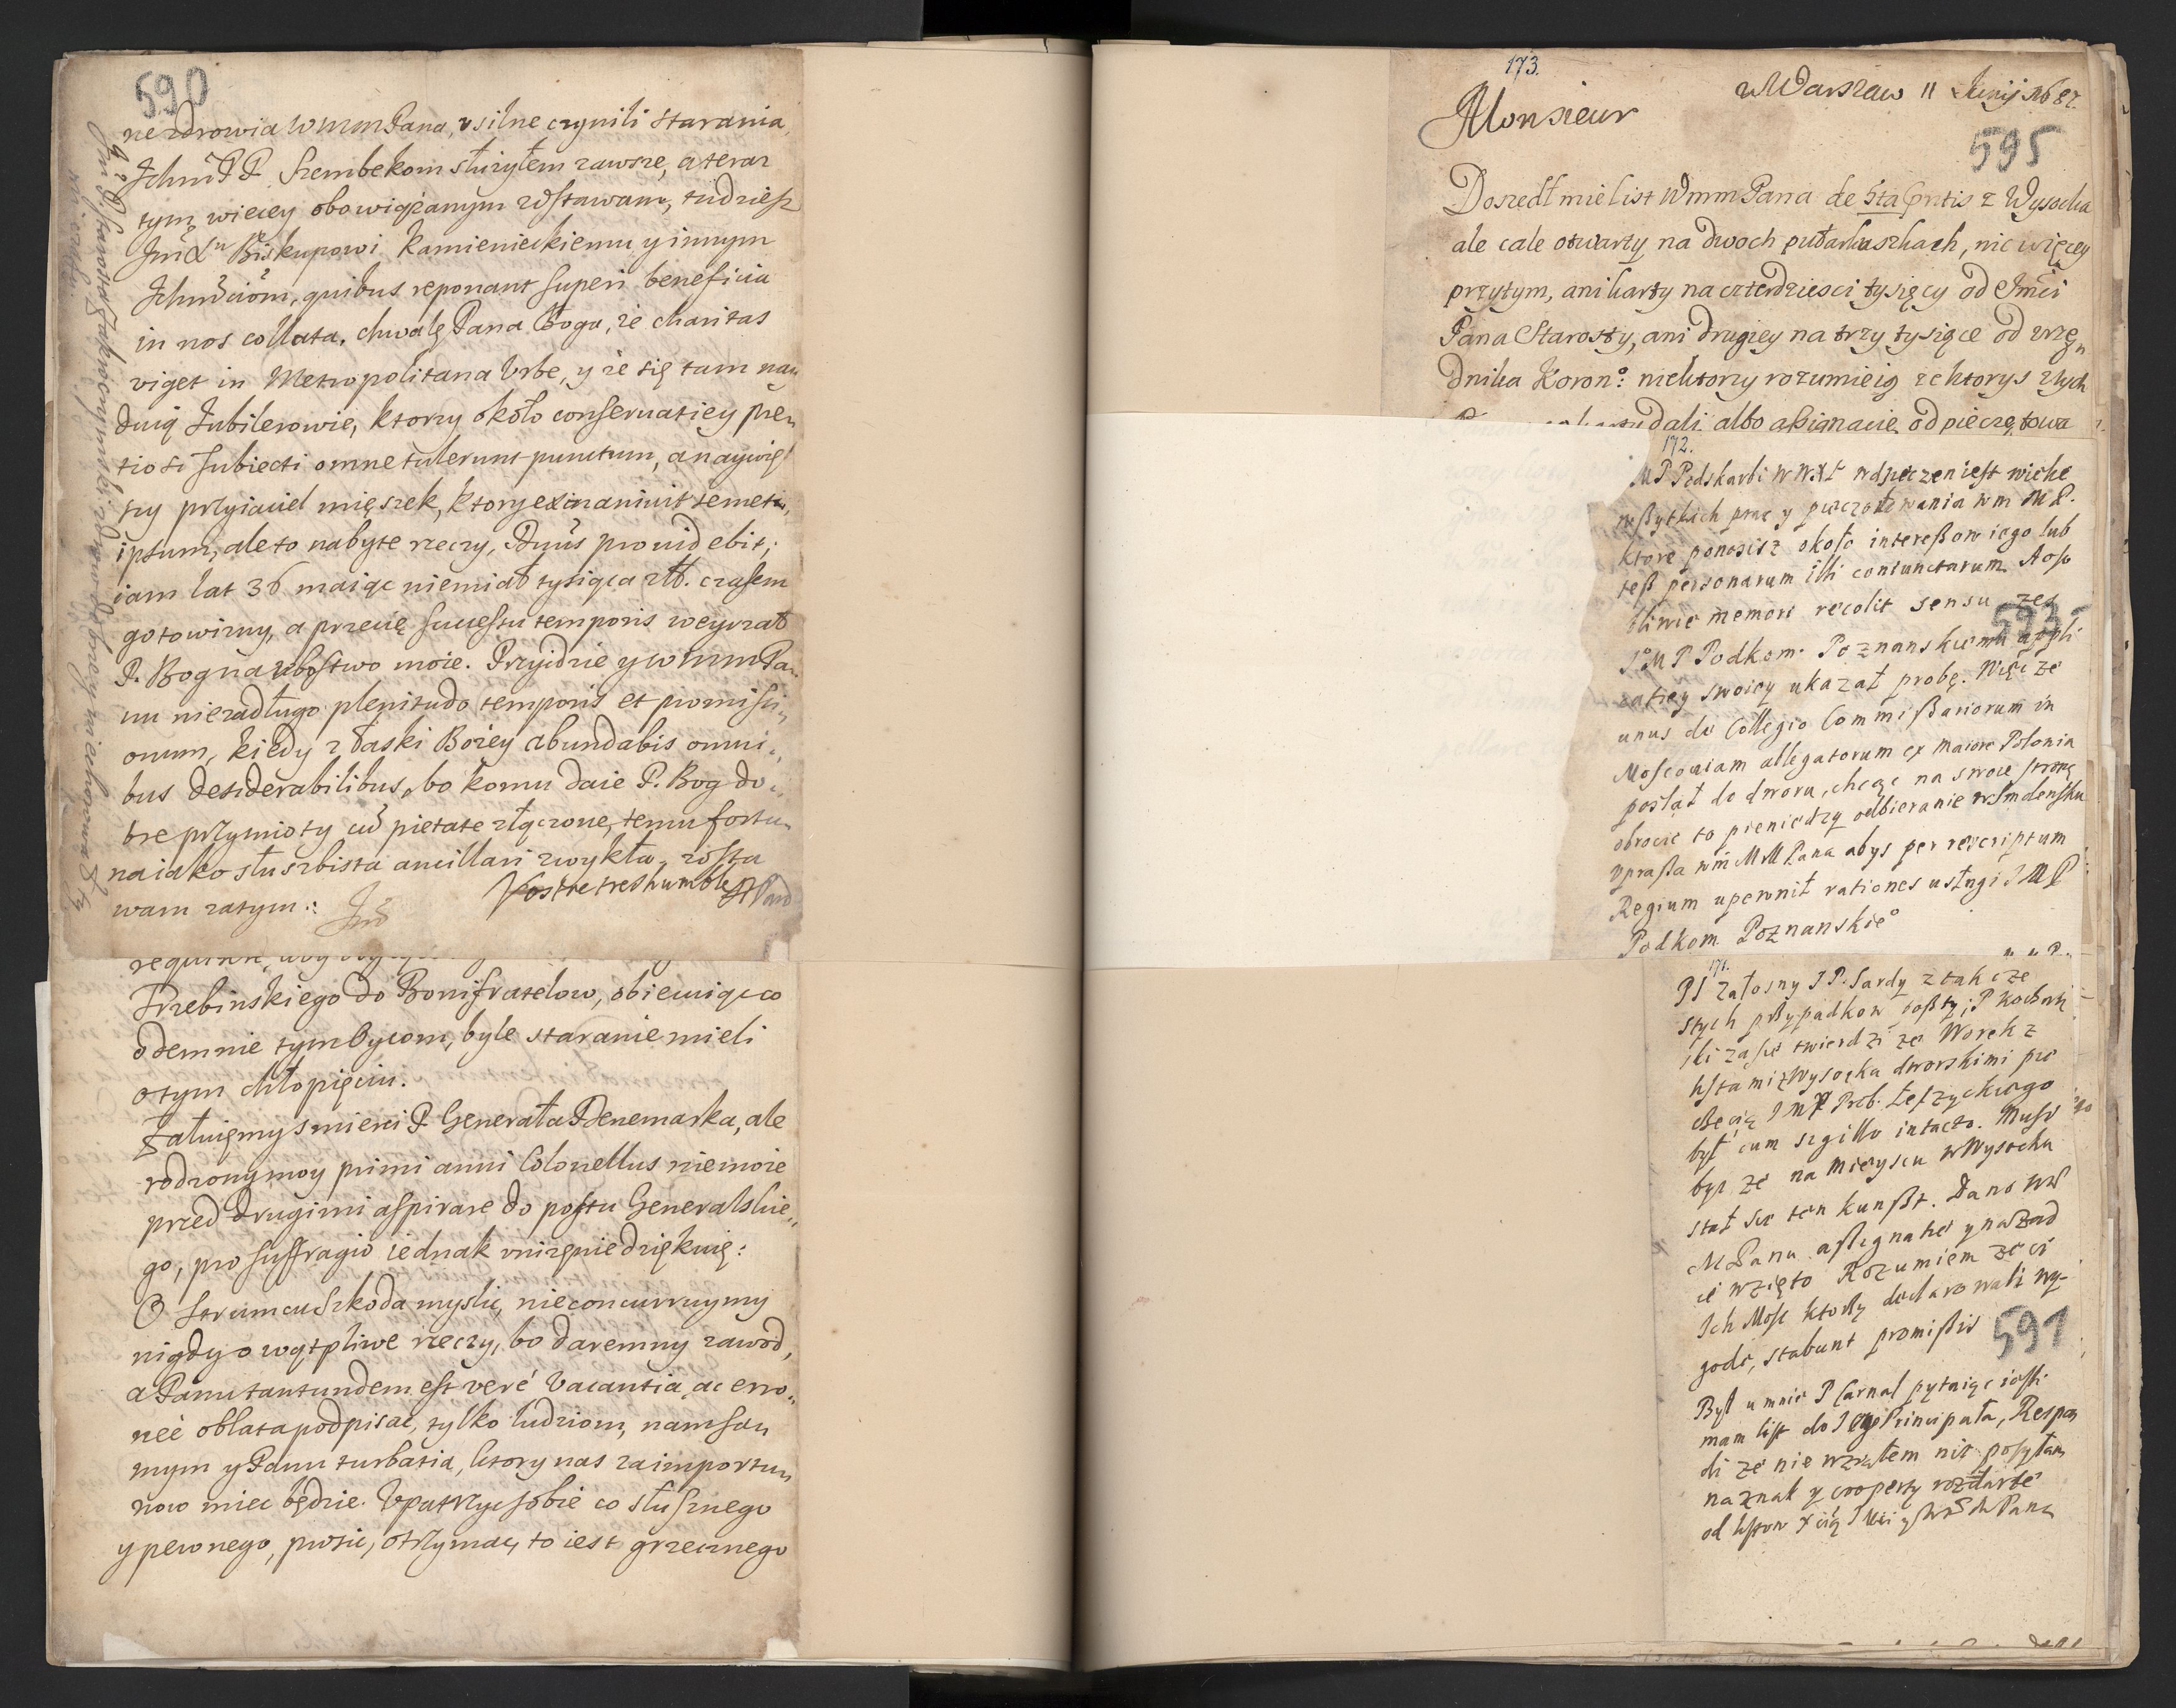 590
ne zdrowia WMM Pana, usilne czynili starania,
Ichm PP. Szembekom służyłem zawsze, a teraz
tym więcey obowiązanym zostawam, tudziesz
Biskupowi Kamienieckiemu y innym
quibus reponant superi beneficia
in nos collata. chwalę Pana Boga, że charitas
viget in Metropolitana Urbe, y że się tam nay
duią Jubilerowie, ktorzy około conservatiey pre
tiosi subiecti omne tulerunt punctum, a naywięk
szy przyiaciel mięszek, ktory exinanivit semet
ipsum, ale to nabyte rzeczy, Dnus providebit;
iam lat 36 maiąc niemiał tysiąca zł. czasem
gotowizny, a przecię successu temporis weyzrał
P. Bog na ubostwo moie. Przyidzie y WMM Pa
nu niezadługo plenitudo temporis et promissi
onum, kiedy z łaski Bożey abundabis omni
bus desiderabilibus, bo komu daie P. Bog do
bre przymioty cum pietate złączone, temu fortu
na iako służbista ancillari zwykła, zosta
wam zatym
Vostre tres humble
Trzebinskiego do Bonifratelow, obiecuiąc co
odemnie tym Oycom, byle staranie mieli
o tym chłopięciu.
Załuięmy smierci P. Generała Denemarka, ale
rodzony moy primi anni Colonellus niemoże
przed drugimi aspirare do postu Generalskie
go, pro suffragio iednak uniżęnie dziękuię:
O szkoda myslic, nieconcurruymy
nigdy o wątpliwe rzeczy, bo daremny zawod,
a Panu tantundem est veré vacantia, ac erro
neé oblata podpisac, tylko ludziom, nam sa
mym y Panu turbatia, ktory nas za importu
now miec będzie. Upatrzyc sobie co słusznego
y pewnego, prosic, otrzymac, to iest grzecznego
173.
w Warszaw 11 Junij 1687.
Monsieur
595
Doszedł mie list WMM Pana de 5ta Pntis z Wysocka
ale cale otwarty na dwoch pułarkuszkach, nic więcey
przytym, ani karty na czterdziesci tysięcy od Jmci
Pana Starosty, ani drugiey na trzy tysiące od urzę
dnika Koron: niektorzy rozumieią że ktorys z tych
dali, albo assignacie odpieczętowa
172.
MP Podskarbi W WXL wdzięczen iest wielce
wszytkich prac y pieczołowania wm MP.
ktore ponosisz około interessow iego lub
tesz personarum illi coniunctarum. A oso
bliwie memori recolit sensu, zes
593
J M P Podkom. Poznanskiemu appli
catiey swoiey ukazał probę. Więc ze
unus de Collegio Commissariorum in
Moscoviam allegatorum ex maiore Polonia
posłał do dworu, chcąc na swoie stronę
obrocic to pieniedzy odbieranie w Smolensku
uprasza wm MM Pana abys per rescriptum
Regium upewnił rationes usługi J M P
Podkom Poznanskie
171.
PS Załosny J P. Sardy z takcze
stych przypadkow poszty; P Kochan
ski zasie twierdzi ze Worek z
listami z Wysocka dworskimi pie
częcią J M P Prob. Łęczyckiego
był cum sigillo intacto. Musi
byc ze na mieyscu w Wysocku
stał sie ten kunszt. Dano WM
M Panu assignatie y nazad
ie wzięto Rozumiem ze ci
Ich Mosc ktorzy declarowali wy-
gode, stabunt promissis
591
Był u mnie P Carnal pytaiąc iesli
mam list do Jego Principała, Respon
di ze nie wziąłem nic posyłam
na znak y coperty rozdarte